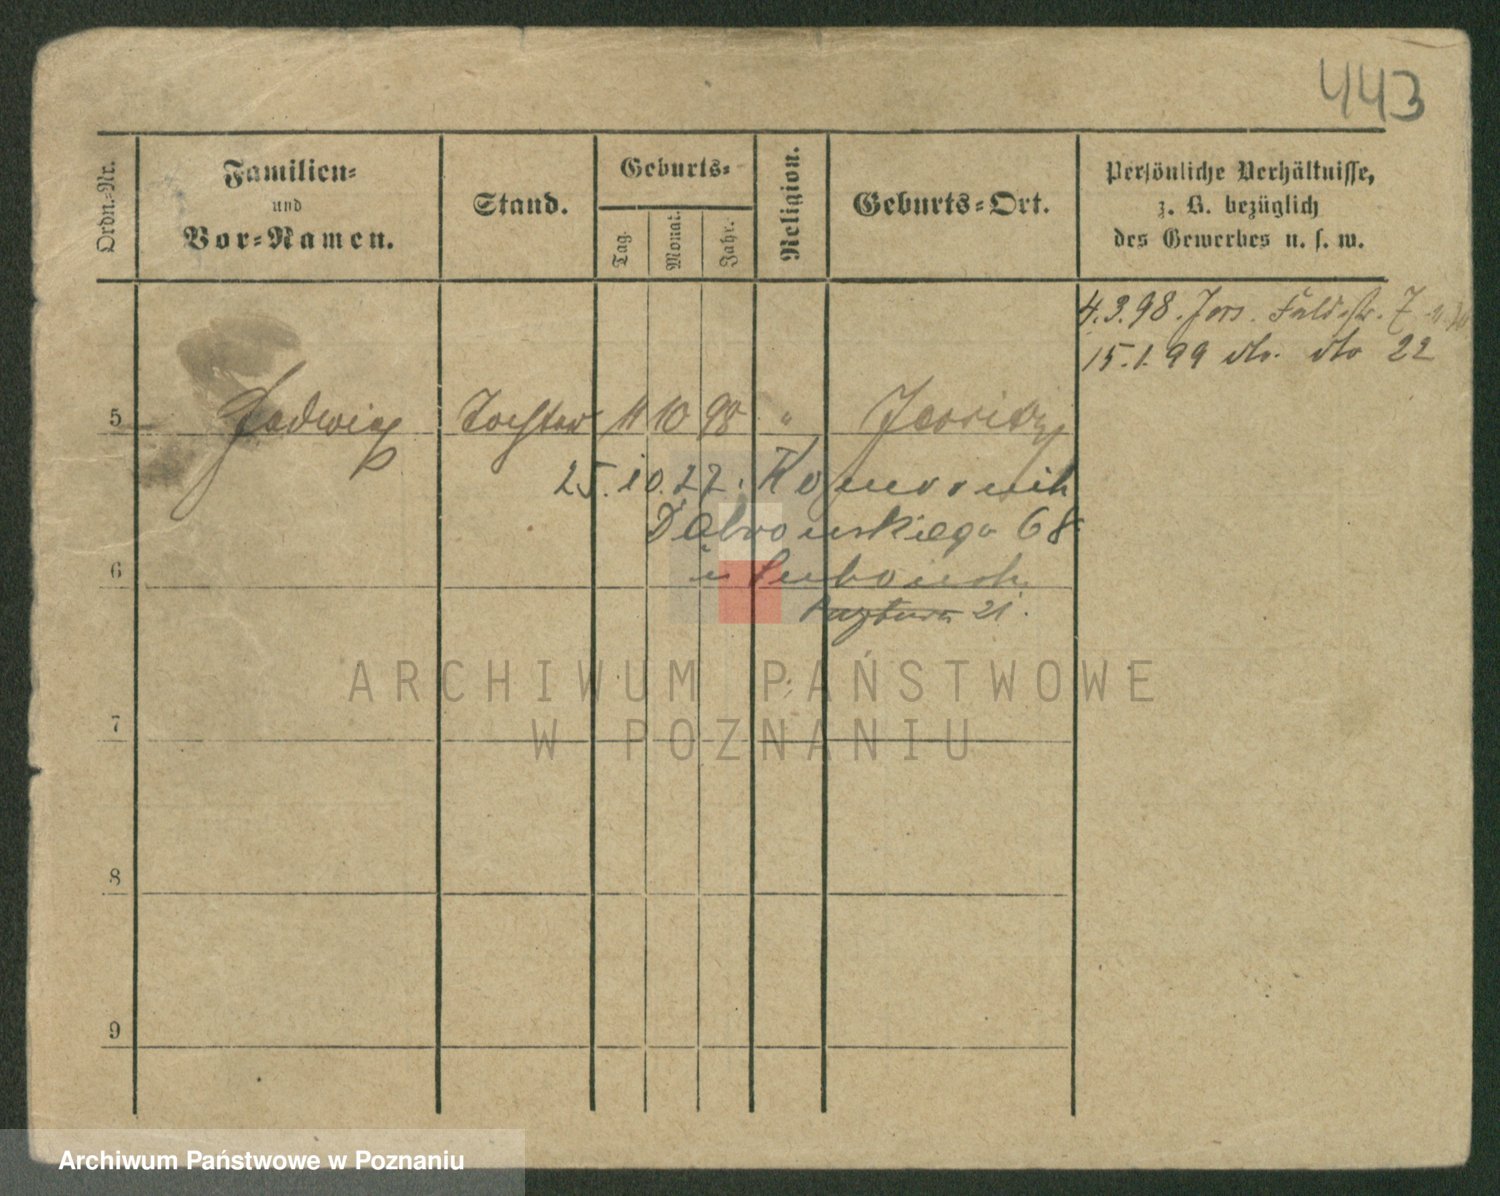 443
Ordn.-Nr.
Familien-
und
Vor-Namen.
Stand.
Geburts-
Tag.
Monat.
Jahr.
Religion.
Geburts-Ort.
Persönliche Verhältnisse,
z. B. bezüglich
des Gewerbes u. s. w.
4.3.98. Jers. Feldstr. 7
15.1.99 do. do 22
5 Jadwiga Tochter 11 10 98 " Jersitz
25.10.27.
Dąbrowskiego 68
6
u
21.
7
8
9
ARCHIWUM PAŃSTWOWE
W POZNANIU
Archiwum Państwowe w Poznaniu